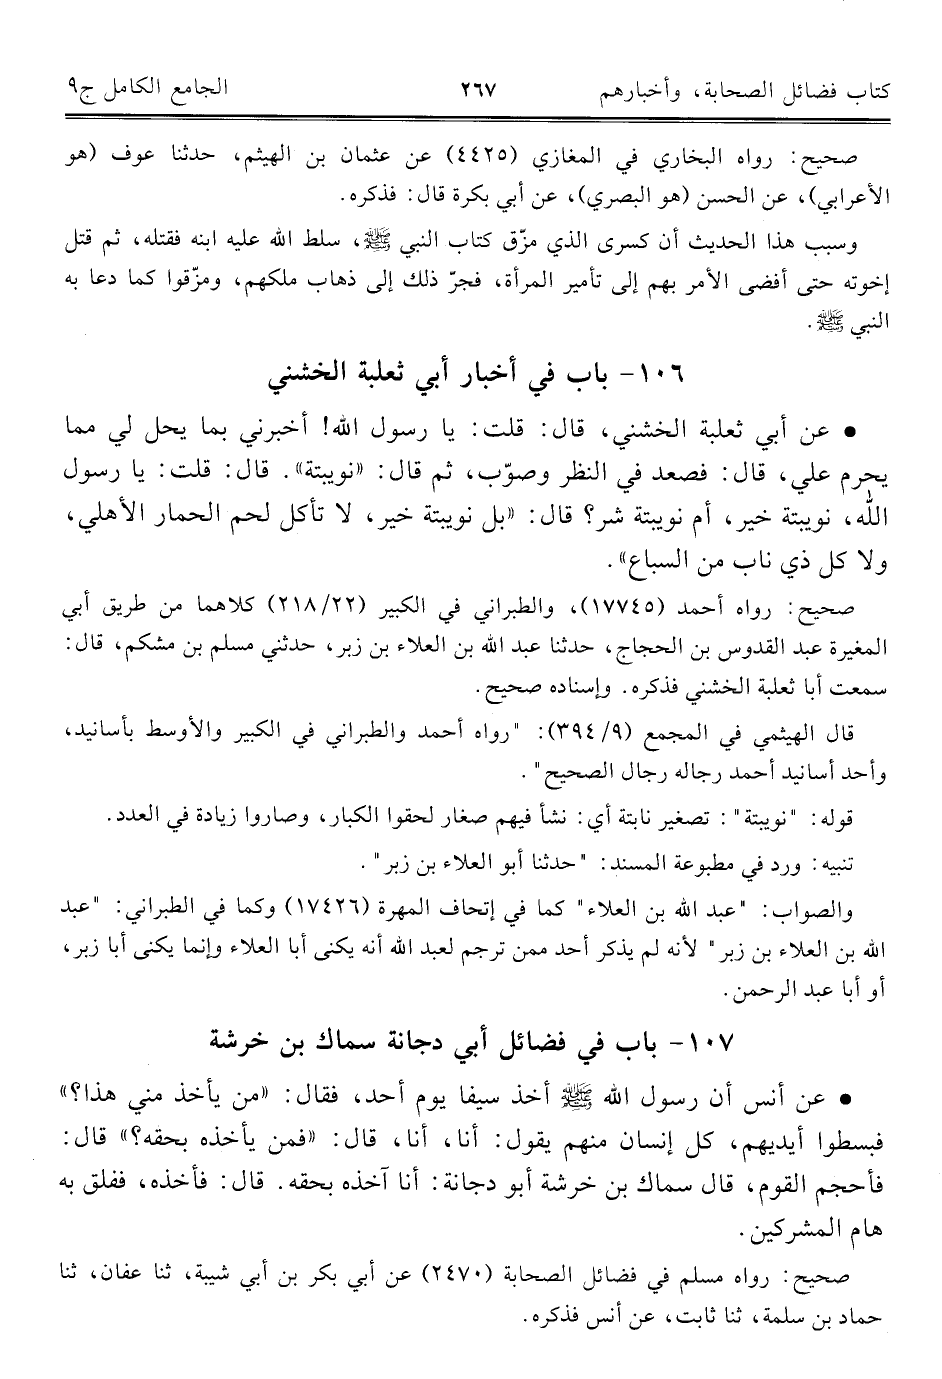 كتاب فضائل الصحابة، وأخبارهم ٢٦٧ الجامع الكامل ج٩
صحيح: رواه البخاري في المغازي (٤٤٢٥) عن عثمان بن الهيثم، حدثنا عوف (هو
الأعرابي)، عن الحسن (هو البصري)، عن أبي بكرة قال: فذكره.
وسبب هذا الحديث أن كسرى الذي مزّق كتاب النبي ﷺ، سلط الله عليه ابنه فقتله، ثم قتل
إخوته حتى أفضى الأمر بهم إلى تأمير المرأة، فجرّ ذلك إلى ذهاب ملكهم، ومزّقوا كما دعا به
النبي ﷺ.
١٠٦- باب في أخبار أبي ثعلبة الخشني
• عن أبي ثعلبة الخشني، قال: قلت: يا رسول الله! أخبرني بما يحل لي مما
يحرم علي، قال: فصعد في النظر وصوّب، ثم قال: «نويبتة». قال: قلت: يا رسول
الله، نويبتة خير، أم نويبتة شر؟ قال: «بل نويبتة خير، لا تأكل لحم الحمار الأهلي،
ولا كل ذي ناب من السباع».
صحيح: رواه أحمد (١٧٧٤٥)، والطبراني في الكبير (٢١٨/٢٢) كلاهما من طريق أبي
المغيرة عبد القدوس بن الحجاج، حدثنا عبد الله بن العلاء بن زبر، حدثني مسلم بن مشكم، قال:
سمعت أبا ثعلبة الخشني فذكره. وإسناده صحيح.
قال الهيثمي في المجمع (٣٩٤/٩): "رواه أحمد والطبراني في الكبير والأوسط بأسانيد،
وأحد أسانيد أحمد رجاله رجال الصحيح".
قوله: "نويبتة": تصغير نابتة أي: نشأ فيهم صغار لحقوا الكبار، وصاروا زيادة في العدد.
تنبيه: ورد في مطبوعة المسند: "حدثنا أبو العلاء بن زبر".
والصواب: "عبد الله بن العلاء" كما في إتحاف المهرة (١٧٤٢٦) وكما في الطبراني: "عبد
الله بن العلاء بن زبر" لأنه لم يذكر أحد ممن ترجم لعبد الله أنه يكنى أبا العلاء وإنما يكنى أبا زبر،
أو أبا عبد الرحمن.
١٠٧- باب في فضائل أبي دجانة سماك بن خرشة
• عن أنس أن رسول الله ﷺ أخذ سيفا يوم أحد، فقال: «من يأخذ مني هذا؟»
فبسطوا أيديهم، كل إنسان منهم يقول: أنا، أنا، قال: «فمن يأخذه بحقه؟» قال:
فأحجم القوم، قال سماك بن خرشة أبو دجانة: أنا آخذه بحقه. قال: فأخذه، ففلق به
هام المشركين.
صحيح: رواه مسلم في فضائل الصحابة (٢٤٧٠) عن أبي بكر بن أبي شيبة، ثنا عفان، ثنا
حماد بن سلمة، ثنا ثابت، عن أنس فذكره.